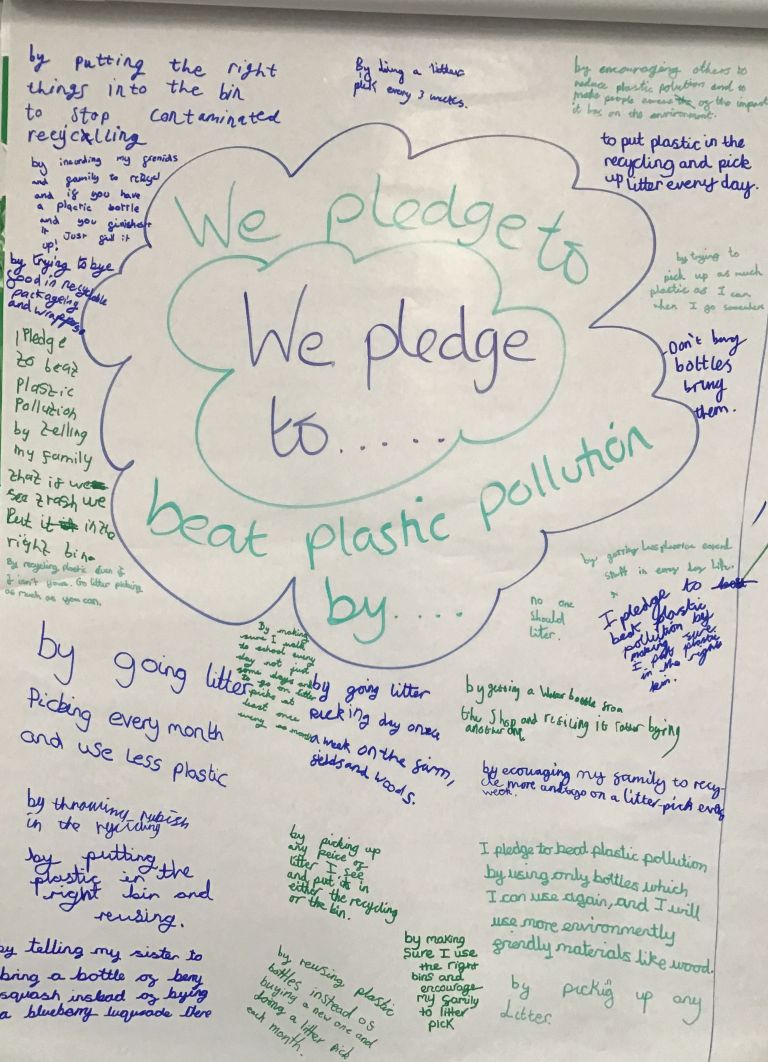 by putting the right
things into the bin
to stop contaminated
recycalling
By doing a litter
pick every 3 weeks.
by encouraging others to
reduce plastic polution and to
make people aware of the impact
it has on the environment.
to put plastic in the
recycling and pick
up litter every day.
by my
and family to
and if you have
a plactic bottle
and you
it Just
up!
by trying to bye
food in recyclable
packageing
and
by trying to
pick up as much
plastic as I can
when I go somewhere
Don't buy
bottles
bring
them.
We pledge to
We pledge
to.....
beat plastic pollution
by....
I Pledge
to beat
Plastic
Pollution
by telling
my family
that if we
see trash we
Put it in the
right bin.
By recycling plastic even if
it isn't yours. Go litter picking
as much as you can.
by
stuff in every day life.
no one
should
liter.
I pledge to
beat plastic
pollution by
making sure
I put plastic
in the right
bin.
by going litter
Picking every month
and use less plastic
By making
sure I walk
to school every
day not just
some days and
to go on litter
picks at
least once
every month
by going litter
picking day once
a week on the farm,
fields and woods.
by getting a water bottle from
the shop and it bying
another one
by ecouraging my family to recy-
cle more and go on a litter-pick every
week.
by throwing rubish
in the recycling
by putting the
plastic in the
right bin and
reusing.
by picking up
any peice of
litter I see
and put it in
either the recycling
or the bin.
I pledge to beat plastic pollution
by using only bottles which
I can use again, and I will
use more environmently
friendly materials like wood.
by telling my sister to
bring a bottle of
squash instead of bying
a blueberry there
by reusing plastic
bottles instead of
buying a new one and
doing a litter pick
each month.
by making
sure I use
the right
bins and
encourage
my family
to litter
pick
by pickig up any
Litter.